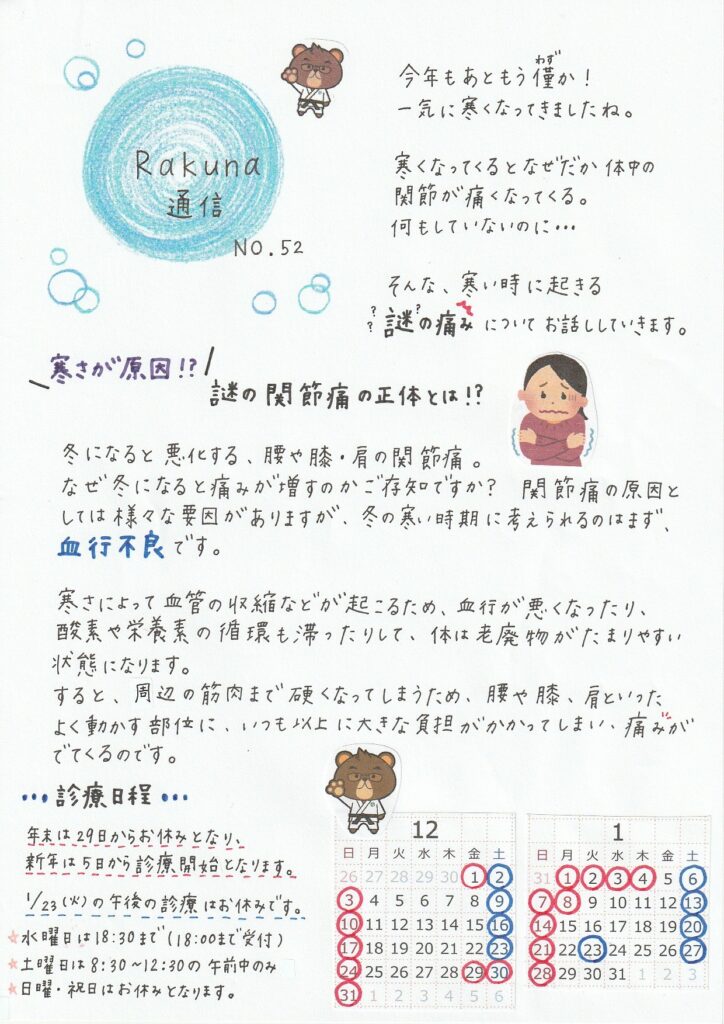 Rakuna
通信
NO.52
今年もあともう僅か！
わず
一気に寒くなってきましたね。
寒くなってくるとなぜだか体中の
関節が痛くなってくる。
何もしていないのに…
そんな、寒い時に起きる
???謎の痛みについてお話ししていきます。
寒さが原因!?
謎の関節痛の正体とは!?
冬になると悪化する、腰や膝・肩の関節痛。
なぜ冬になると痛みが増すのかご存知ですか？ 関節痛の原因と
しては様々な要因がありますが、冬の寒い時期に考えられるのはまず、
血行不良です。
寒さによって血管の収縮などが起こるため、血行が悪くなったり、
酸素や栄養素の循環も滞ったりして、体は老廃物がたまりやすい
状態になります。
すると、周辺の筋肉まで硬くなってしまうため、腰や膝、肩といった
よく動かす部位に、いつも以上に大きな負担がかかってしまい、痛みが
でてくるのです。
…診療日程…
年末は29日からお休みとなり、
新年は5日から診療開始となります。
1/23(火)の午後の診療はお休みです。
☆水曜日は18:30まで(18:00まで受付)
★土曜日は8:30~12:30の午前中のみ
★日曜・祝日はお休みとなります。
12
日 月 火 水 木 金 土
26 27 28 29 30 1 2
3 4 5 6 7 8 9
10 11 12 13 14 15 16
17 18 19 20 21 22 23
24 25 26 27 28 29 30
31 1 2 3 4 5 6
1
日 月 火 水 木 金 土
31 1 2 3 4 5 6
7 8 9 10 11 12 13
14 15 16 17 18 19 20
21 22 23 24 25 26 27
28 29 30 31 1 2 3